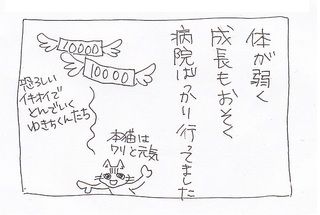 体が弱く
成長もおそく
病院ばっかり行ってました
10000
10000
恐ろしい
イキオイで
とんでいく
ゆきちくんたち
本猫は
ワリと元気